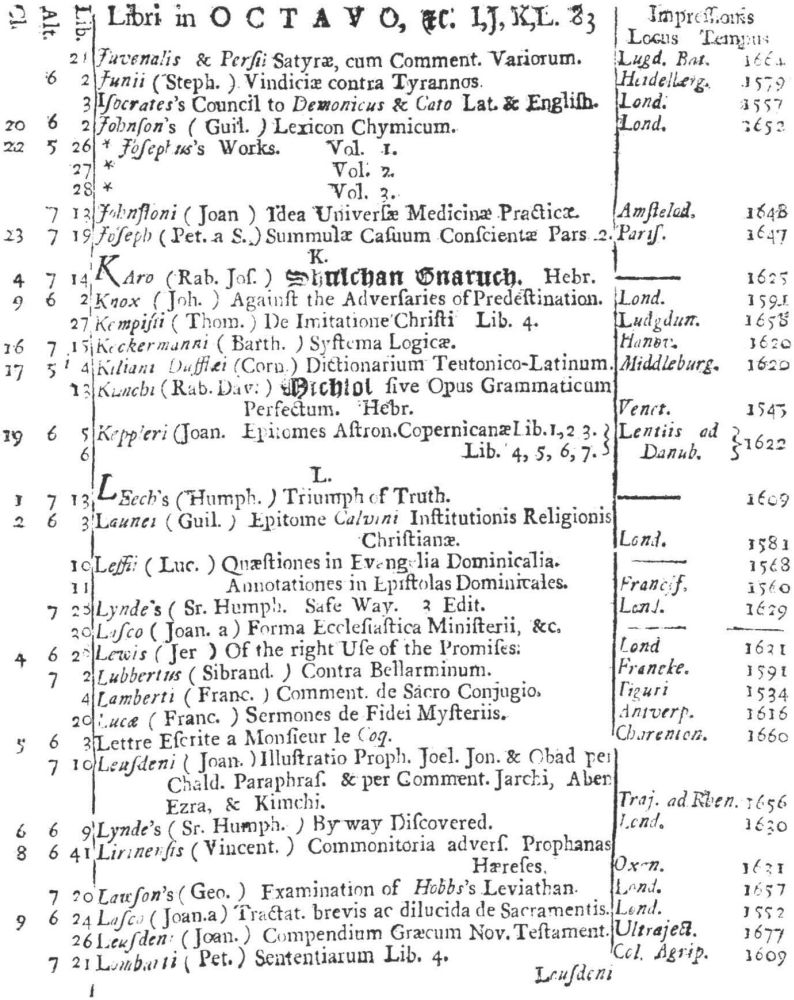 Cl. Alt. Lib. Libri in OCTAVO, &c. I,J, K,L. 83 Impressionis
Locus Tempus
21 Juvenalis & Persii Satyræ, cum Comment. Variorum. Lugd. Bat. 1664
6 2 Junii (Steph.) Vindiciæ contra Tyrannos. Heidelberg. 1579
3 Isocrates's Council to Demonicus & Cato Lat. & English. Lond. 1557
20 6 2 Johnson's (Guil.) Lexicon Chymicum. Lond. 1652
22 5 26 * Josephus's Works. Vol. 1.
27 * Vol. 2.
28 * Vol. 3.
7 13 Johnstoni (Joan) Idea Universæ Medicinæ Practicæ. Amstelod. 1648
23 7 19 Joseph (Pet. a S.) Summulæ Casuum Conscientæ Pars 2. Paris. 1647
K.
4 7 14 KAro (Rab. Jos.) Shulchan Gnaruch. Hebr. —— 1625
9 6 2 Knox (Joh.) Against the Adversaries of Predestination. Lond. 1591
27 Kempisii (Thom.) De Imitatione Christi Lib. 4. Ludgdun. 1658
16 7 15 Keckermanni (Barth.) Systema Logicæ. Hanov. 1620
17 5 4 Kiliani Dufflæi (Corn.) Dictionarium Teutonico-Latinum. Middleburg. 1620
13 Kimchi (Rab. Dav.) Michlol sive Opus Grammaticum
Perfectum. Hebr. Venet. 1545
19 6 5 Keppleri (Joan. Epitomes Astron. Copernicanæ Lib. 1, 2 3. } Lentiis ad }
6 Lib. 4, 5, 6, 7. } Danub. } 1622
L.
1 7 13 LEech's (Humph.) Triumph of Truth. —— 1609
2 6 3 Launei (Guil.) Epitome Calvini Institutionis Religionis
Christianæ. Lond. 1581
10 Lossii (Luc.) Quæstiones in Evangelia Dominicalia. —— 1568
11 Annotationes in Epistolas Dominicales. Francif. 1560
7 23 Lynde's (Sr. Humph. Safe Way. 3 Edit. Lond. 1629
20 Lasco (Joan. a) Forma Ecclesiastica Ministerii, &c. —— ——
4 6 22 Lewis (Jer) Of the right Use of the Promises. Lond 1621
7 2 Lubbertus (Sibrand.) Contra Bellarminum. Franeke. 1591
4 Lamberti (Franc.) Comment. de Sacro Conjugio. Tiguri 1534
20 Lucæ (Franc.) Sermones de Fidei Mysteriis. Antverp. 1616
5 6 3 Lettre Escrite a Monsieur le Coq. Charenton. 1660
7 10 Leusdeni (Joan.) Illustratio Proph. Joel. Jon. & Obad per
Chald. Paraphras. & per Comment. Jarchi, Aben
Ezra, & Kimchi. Traj. ad Rhen. 1656
6 6 9 Lynde's (Sr. Humph.) By way Discovered. Lond. 1630
8 6 41 Lirinensis (Vincent.) Commonitoria advers. Prophanas
Hæreses. Oxon. 1631
7 20 Lawson's (Geo.) Examination of Hobbs's Leviathan. Lond. 1657
9 6 24 Lasco (Joan. a) Tractat. brevis ac dilucida de Sacramentis. Lond. 1552
26 Leusdeni (Joan.) Compendium Græcum Nov. Testament. Ultraject. 1677
7 21 Lombarti (Pet.) Sententiarum Lib. 4. Col. Agrip. 1609
Leusdeni